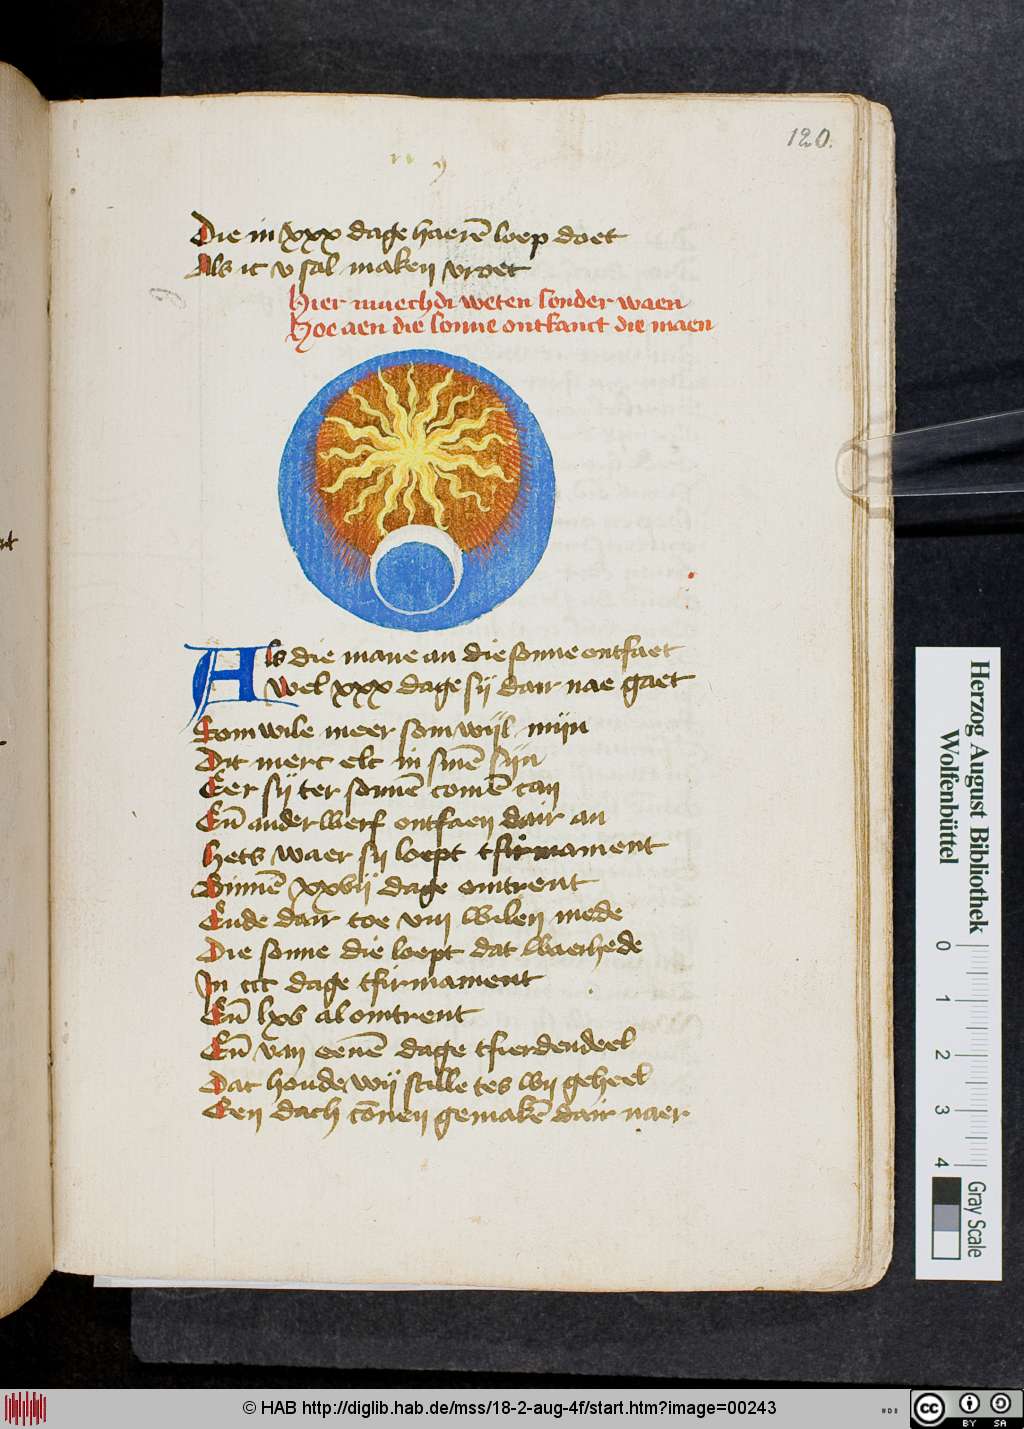 120.
Die in xxx dage haerē loep doet
Als ic v sal maken vroet
Hier muechdi weten sonder waen
Hoe aen die sonne ontfanct die maen
Als die mane an die sonne ontfaet
Wel xxx dage sij dair nae gaet
Som wile meer som wijl mijn
Dit merc elc in sinē sijn
Eer sij ter sonnē comē can
Eñ anderwerf ontfaen dair an
Hets waer sij loept tfirmament
Binnē xxvij dage omtrent
Ende dair toe viij wilen mede
Die sonne die loept dat waerhede
In ccc dage tfirmament
Eñ lxv al omtrent
Eñ van eenē dage tfierdendeel
Dat houde wij stille tes wij geheel
Een dach cōnen gemakē dair naer
Herzog August Bibliothek
Wolfenbüttel
0 1 2 3 4
Gray Scale
© HAB http://diglib.hab.de/mss/18-2-aug-4f/start.htm?image=00243
CC BY SA